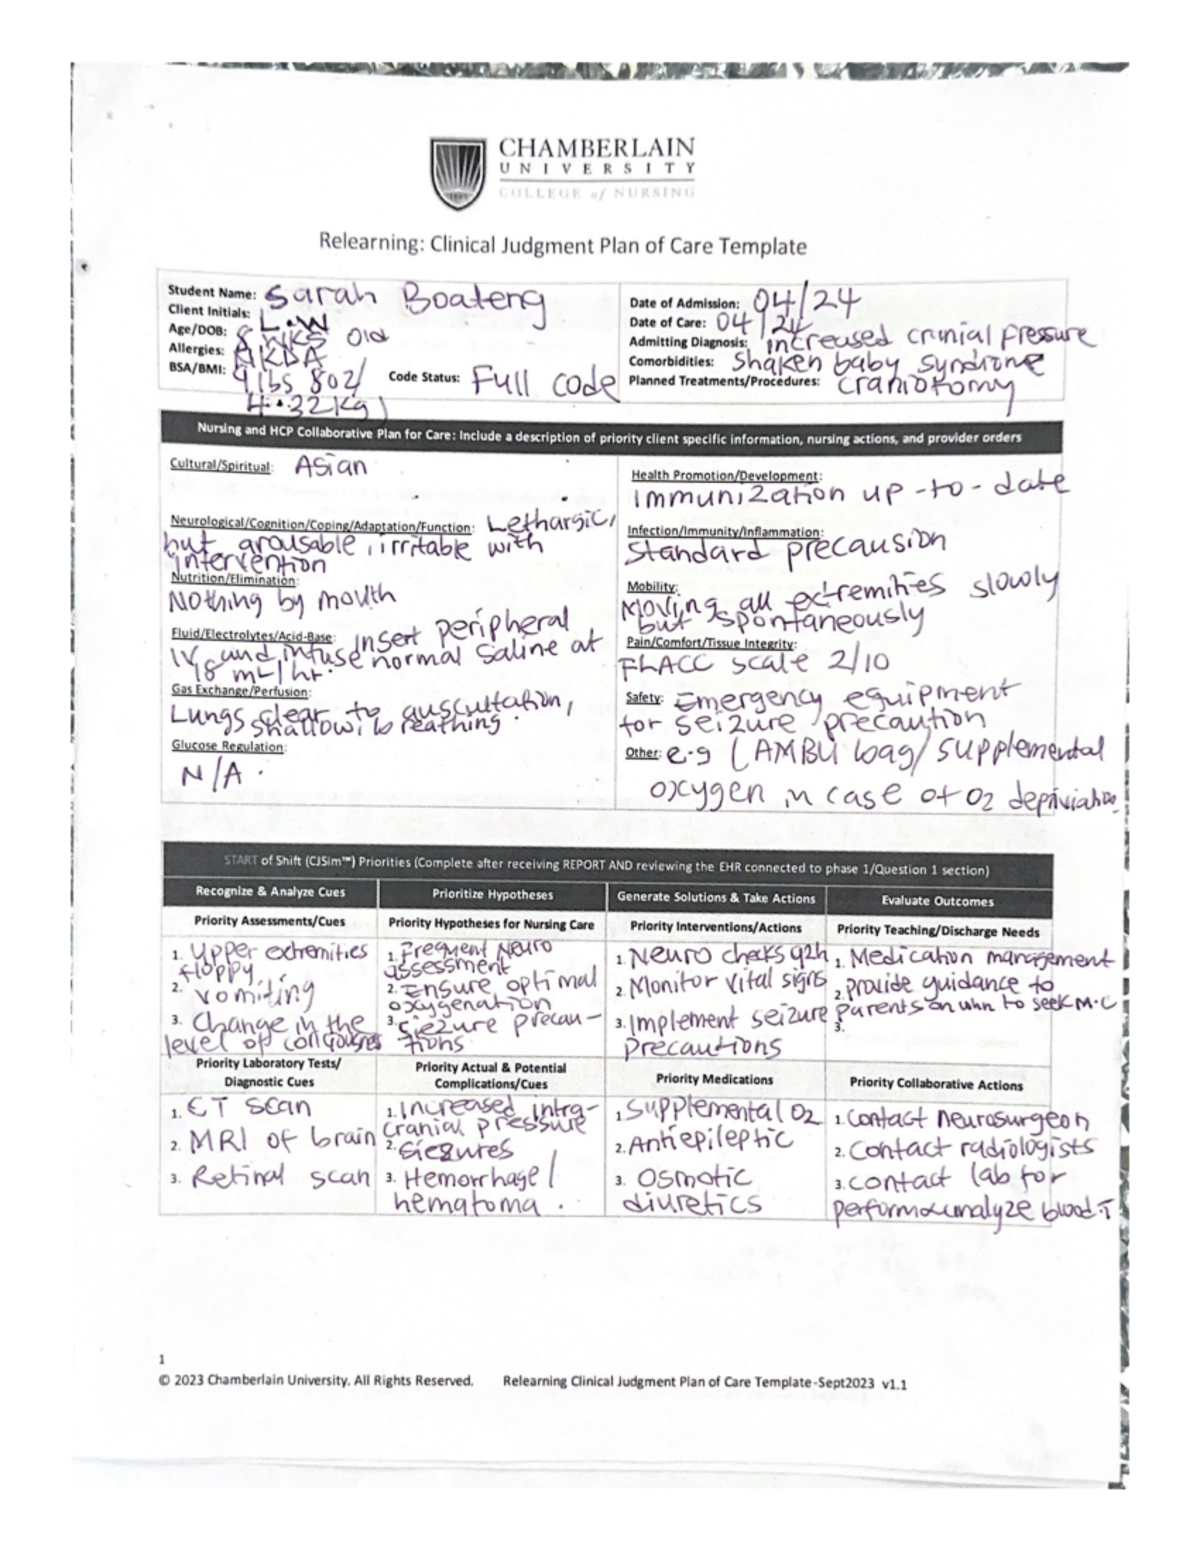 CHAMBERLAIN
UNIVERSITY
COLLEGE of NURSING
Relearning: Clinical Judgment Plan of Care Template
Student Name: Sarah Boateng
Client Initials: L.W
Age/DOB: 8 WKS Old
Allergies: NKDA
BSA/BMI: 9 lbs 8oz/
4.32kg)
Code Status: Full code
Date of Admission: 04/24
Date of Care: 04/24
Admitting Diagnosis: increased crinial pressure
Comorbidities: Shaken baby syndrome
Planned Treatments/Procedures: craniotomy
Nursing and HCP Collaborative Plan for Care: Include a description of priority client specific information, nursing actions, and provider orders
Cultural/Spiritual: Asian
Neurological/Cognition/Coping/Adaptation/Function: Lethargic,
but arousable, irritable with
intervention
Nutrition/Elimination:
Nothing by mouth
Fluid/Electrolytes/Acid-Base: Insert peripheral
IV and infuse normal saline at
18 mL/hr.
Gas Exchange/Perfusion:
Lungs clear to auscultation,
shallow breathing.
Glucose Regulation:
N/A.
Health Promotion/Development:
Immunization up-to-date
Infection/Immunity/Inflammation:
Standard precausion
Mobility:
Moving all extremities slowly
but spontaneously
Pain/Comfort/Tissue Integrity:
FLACC scale 2/10
Safety: Emergency equipment
for seizure precaution
Other: e.g (AMBU bag/supplemental
oxygen in case of O2
START of Shift (CJSim™) Priorities (Complete after receiving REPORT AND reviewing the EHR connected to phase 1/Question 1 section)
Recognize & Analyze Cues
Priority Assessments/Cues
1. Upper extremities
floppy
2. vomiting
3. Change in the
level of
Prioritize Hypotheses
Priority Hypotheses for Nursing Care
1. Frequent Neuro
assessment
2. Ensure optimal
oxygenation
3. Siezure precau-
tions
Generate Solutions & Take Actions
Priority Interventions/Actions
1. Neuro checks q2h
2. Monitor vital signs
3. Implement seizure
precautions
Evaluate Outcomes
Priority Teaching/Discharge Needs
1. Medication management
2. provide guidance to
parents on whn to seek M.C
3.
Priority Laboratory Tests/
Diagnostic Cues
1. CT scan
2. MRI of brain
3. Retinal scan
Priority Actual & Potential
Complications/Cues
1. Increased intra-
cranial pressure
2. Siezures
3. Hemorrhage/
hematoma.
Priority Medications
1. Supplemental O2
2. Antiepileptic
3. Osmotic
diuretics
Priority Collaborative Actions
1. Contact neurosurgeon
2. Contact radiologists
3. contact lab for
blood T
1
© 2023 Chamberlain University. All Rights Reserved. Relearning Clinical Judgment Plan of Care Template-Sept2023 v1.1